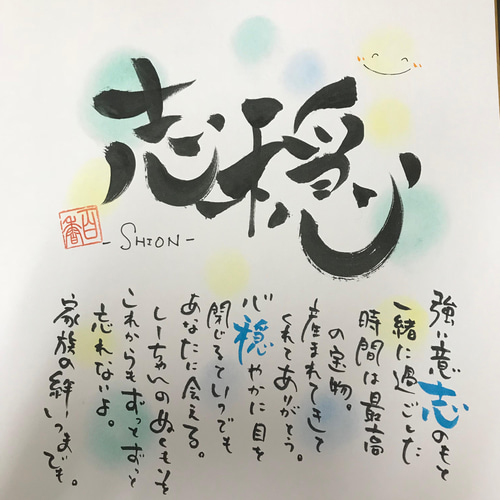 志穏
- SHION -
百香
強い意志のもと
一緒に過ごした
時間は最高
の宝物。
産まれてきて
くれてありがとう。
心穏やかに目を
閉じるていつでも
あなたに会える。
しーちゃんのぬくもりを
これからもずっとずっと
忘れないよ。
家族の絆いつまでも。